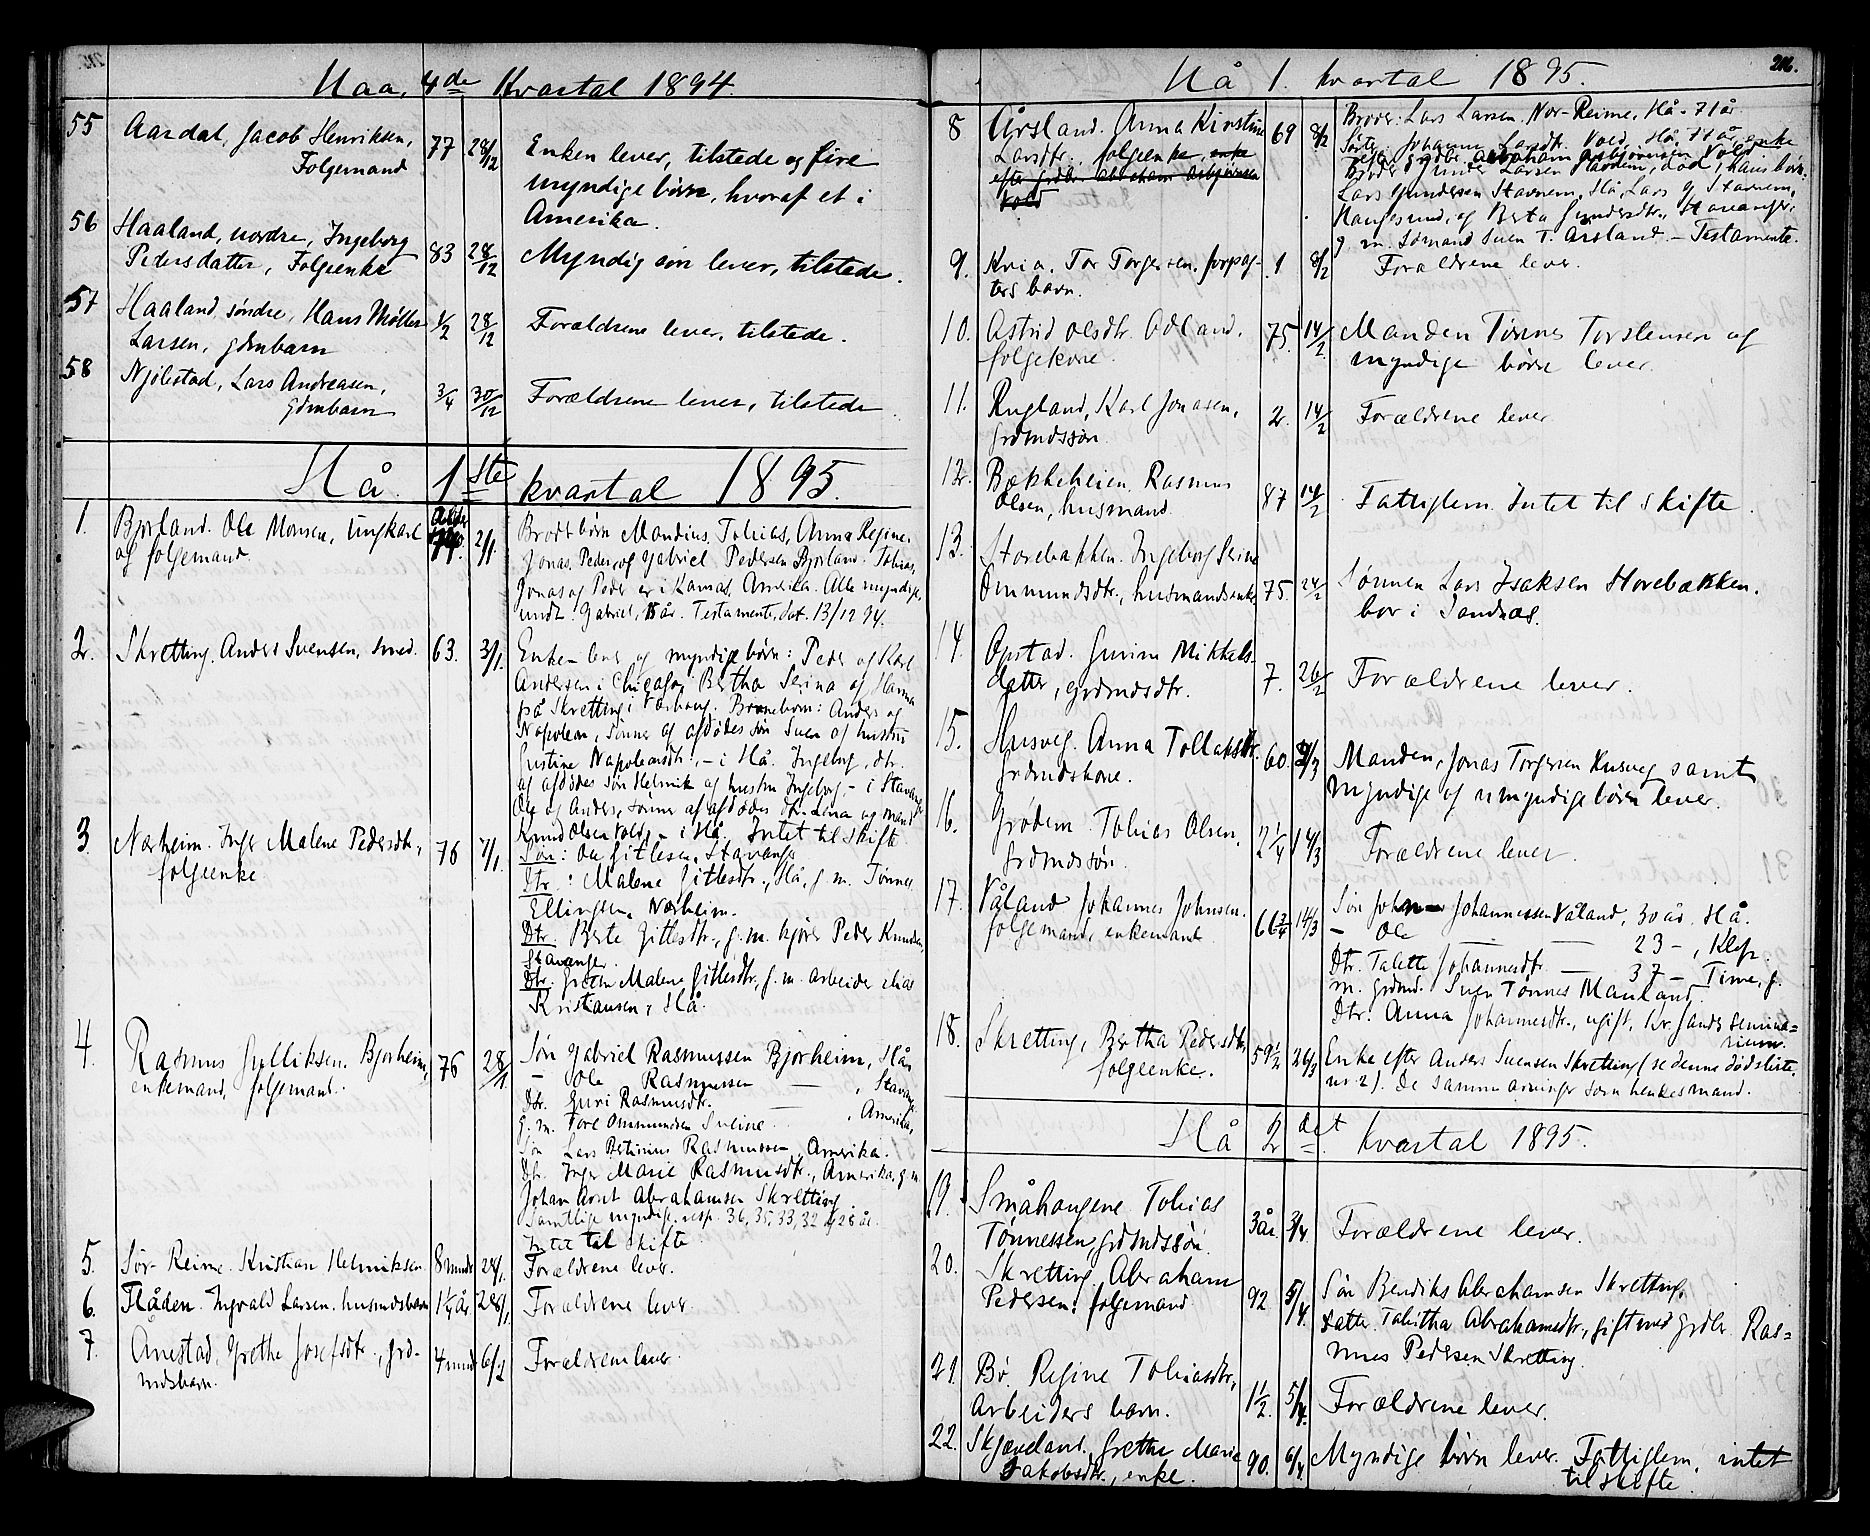 Haa, 4de Kvartal 1894.
55 Aardal, Jacob Henriksen, 77 28/12 Enken lever, tilstede og fire
Folgemand myndige børn, hvoraf et i
Amerika.
56 Haaland, nordre, Ingeborg 83 28/12 Myndig søn lever, tilstede.
Pedersdatter, Folgeenke
57 Haaland, søndre, Hans Møller 1/2 28/12 Forældrene lever, tilstede.
Larsen, gdmbarn
58 Njølstad, Lars Andreasen, 3/4 30/12 Forældrene lever, tilstede
gdmbarn
Hå. 1ste kvartal 1895.
1. Bjorland. Ole Monsen, ungkarl 2/1 Brodt børn Mandius, Tobias, Anna Regine,
og folgemand. Jonas, Peder, og Gabriel Pedersen Bjorland. Tobias,
Jonas og Peder er i Kansas, Amerika. Alle myndige,
undt. Gabriel, 15 år. Testamente, dat. 13/12 94.
2. Skretting. Anders Svensen, smed. 63. 3/1. Enke lever og myndige børn: Peder og Karl
Andersen i Chicago, Bertha Serina og Hanna
på Skretting i Varhaug. Børnebørn: Anders og
Napoleon, sønner af afdødes søn Sven og hustru
Gustine Napoleonsdtr., - i Hå. Ingeborg, dtr.
af afdødes søn Helmik og hustru Ingeborg, - i Stavanger
Ole og Anders, sønner af afdødes dtr. Lina og mand
Knud Olsen Vold, - i Hå. Intet til skifte
3. Nærheim. Inger Malene Pedersdtr., 76 7/1. Søn: Ole Gitlesen, Stavanger
folgeenke Dtr.: Malene Gitlesdtr., Hå, g. m. Tønnes
Ellingsen, Nærheim.
Dtr. Berte Gitlesdtr., g. m. kjører Peder Knudsen,
Stavanger.
Dtr. Malene Gitlesdtr., g. m. arbeider Elias
Kristiansen, Hå.
4. Rasmus Gulliksen. Bjorheim, 76 28/1 Søn Gabriel Rasmussen Bjorheim, Hå
enkemand, folgemand. — Ole Rasmussen — , Stavanger
Dtr. Guri Rasmusdtr. — , Amerika,
g. m. Tore Ommundsen
Søn Lars Bertinius Rasmussen, Amerika.
Dtr. Inger Marie Rasmusdtr., Amerika, g. m.
Johan Arnt Abrahamsen Skretting
Samtlige myndige, resp. 36, 35, 33, 32 og 28 år.
Intet til skifte.
5. Sør-Reime. Kristian Helmiksen 8 mndr 28/1. Forældrene lever.
6. Flåden. Ingvald Larsen. husmdsbarn 1 1/4 år. 28/1 Forældrene lever.
7. Anestad, Grethe Josefsdtr., grd- 4 mndr 6/2 Forældrene lever.
mdsbarn.
Hå 1. kvartal 1895.
212.
8 Årsland. Anna Kirstine 69 8/2 Broder: Lars Larsen. Nor-Reime, Hå - 71 år
Larsdtr., folgeenke, enke Søster: Johanne Larsdtr. Vold, Hå, enke
efter grdbr. Abraham Asbjørnsen efter grdbr. Abraham Asbjørnsen Vold
Vold Broder Gunder Larsen Stavnem, død, hans børn:
Lars Gundersen Stavnem, Hå, Lars G. Stavnem,
Haugesund, og Berta Gundersdtr., Stavanger,
g. m. sømand Sven T. Årsland. - Testamente.
9. Kvia. Tor Torgersen. forpag- 1 8/2 Forældrene lever.
ters barn.
10. Astrid Olsdtr. Ødland. 75. 14/2 Manden Tønnes Torstensen og
folgekone. myndige børn lever.
11. Rugland, Karl Jonasen, 2. 14/2 Forældrene lever
grdmdssøn.
12. Bækkeheien. Rasmus 87 14/2 Fattiglem. Intet til skifte.
Olsen, husmand.
13. Storebakken. Ingeborg Serine
Ommundsdtr., husmandsenke 75. 24/2 Sønnen Lars Isaksen Storebækken.
bor i Sandnæs.
14. Opstad. Gurine Mikkels- 7. 26/2 Forældrene lever.
datter, grdmdsdtr.
15. Husveg. Anna Tollaksdtr. 60. Manden, Jonas Torgersen Husveg samt
Grdmdskone. myndige og umyndige børn lever.
16. Grødem. Tobias Olsen, 2 1/4 14/3 Forældrene lever.
grdmdssøn.
17. Våland Johannes Johnsen. 66 3/4 14/3 Søn John Johannessen Våland, 30 år, Hå.
folgemand, enkemand — Ole — — 23 -, Klep.
Dtr. Talette Johannesdtr. — 37 - Time, g.
m. grdmd. Sven Tønnes Mauland.
Dtr. Anna Johannesdtr., ugift, Kr.sands semina=
rium.
18. Skretting, Bertha Pedersdtr. 59 1/2 26/3 Enke efter Anders Svensen Skretting (se denne dødsliste
folgeenke. nr 2). De samme arvinger som henkes mand.
Hå 2det kvartal 1895.
19. Småhaugene Tobias 3 år. 3/4. Forældrene lever.
Tønnessen, grdmdssøn.
20. Skretting. Abraham 92 5/4. Søn Bendiks Abrahamsen Skretting,
Pedersen. folgemand Datter Tabitha Abrahamsdtr., gift med grdbr. Ras=
mus Pedersen Skretting.
21. Bø. Regine Tobiasdtr, 1 1/2. 5/4. Forældrene lever.
arbeiders barn.
22. Skjæveland. Grethe Marie 90. 6/4. Myndige børn lever. Fattiglem, intet
Jakobsdtr., enke. til skifte.